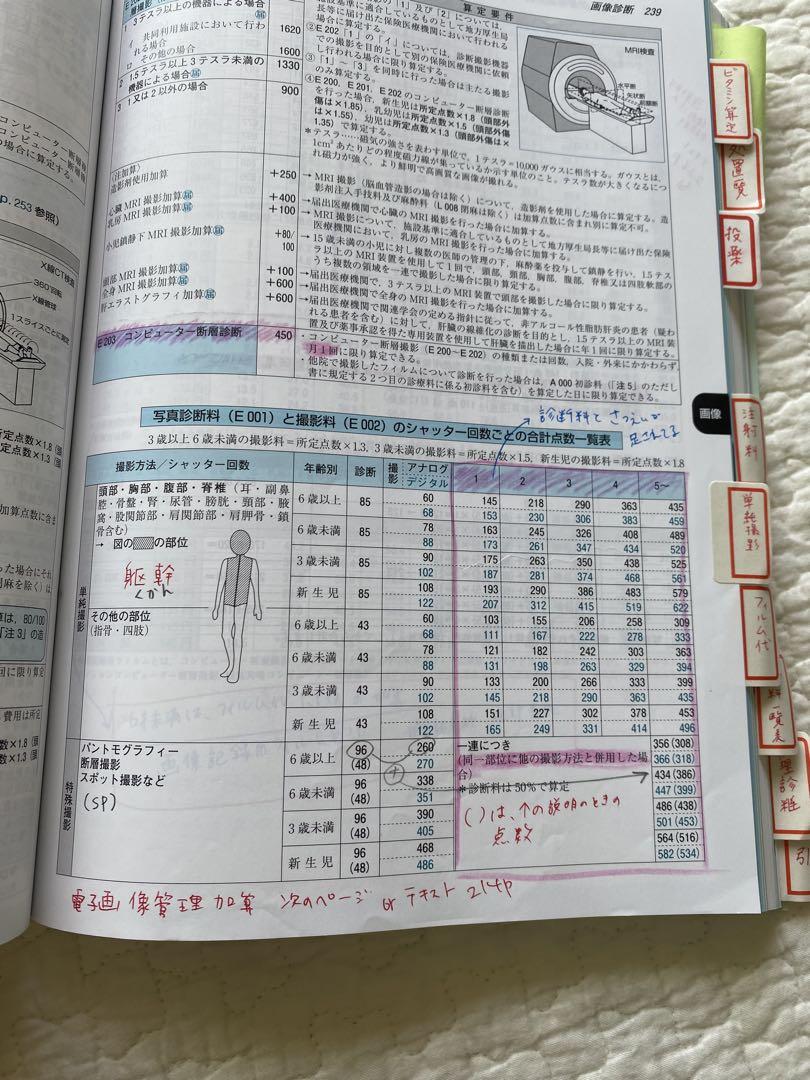 画像診断 239
算定要件
撮影(
3テスラ以上の機器による場合
共同利用施設において行われる場合 1620
その他の場合 1600
2 1.5テスラ以上3テスラ未満の機器による場合 届 1330
3 1又は2以外の場合 900
②E202「1」の「イ」については,診断撮影機器での撮影を目的として別の保険医療機関に依頼し行われる場合に限り算定する。
③「1」～「3」を同時に行った場合は主たる撮影のみ算定する。
④E200,E201,E202のコンピューター断層診断を行った場合,新生児は所定点数×1.8(頭部外傷は×1.85),乳幼児は所定点数×1.5(頭部外傷は×1.55),幼児は所定点数×1.3(頭部外傷は×1.35)で算定する。
*テスラ……磁気の強さを表わす単位で,1テスラ=10,000ガウスに相当する。ガウスとは,1cm²あたりどの程度磁力線が集っているか示す単位のこと。テスラ数が大きくなるにつれ磁力が強く,より鮮明で高画質な画像が撮れる。
MRI検査
水平断
矢状断
前額断
(注加算)
造影剤使用加算 +250
→MRI撮影(脳血管造影の場合は除く)について,造影剤を使用した場合に算定する。造影剤注入手技料及び麻酔料(L008閉麻は除く)は加算点数に含まれ別に算定不可。
心臓MRI撮影加算 届 +400
→届出医療機関で心臓のMRIを行った場合に加算する。
乳房MRI撮影加算 届 +100
→MRI撮影について,施設基準に適合しているものとして地方厚生局長等に届け出た保険医療機関において,乳房のMRI撮影を行った場合に加算する。
小児鎮静下MRI撮影加算 届 +80/100
→15歳未満の小児に対し複数の医師の管理の下,麻酔薬を投与して鎮静を行い,1.5テスラ以上のMRI装置を使用して1回で,頭部,頸部,胸部,腹部,脊椎又は四肢軟部のうち複数の領域を一連で撮影した場合に限り算定する。
頭部MRI撮影加算 届 +100
→届出医療機関で,3テスラ以上のMRI装置で頭部を撮影した場合に限り算定する。
全身MRI撮影加算 届 +600
→届出医療機関で全身のMRI撮影を行った場合に加算する。
肝エラストグラフィ加算 届 +600
→届出医療機関で関連学会の定める指針に従って,非アルコール性脂肪肝炎の患者(疑われる患者を含む。)に対して,肝臓の線維化の診断を目的とし,1.5テスラ以上のMRI装置及び薬事承認を得た専用装置を使用して肝臓を描出した場合に年1回に限り算定する。
E203 コンピューター断層診断 450
・コンピューター断層撮影(E200～E202)の種類または回数,入院・外来にかかわらず,月1回に限り算定できる。
・他院で撮影したフィルムについて診断を行った場合は,A000初診料(「注5」のただし書に規定する2つ目の診療科に係る初診料を含む)を算定した日に限り算定できる。
写真診断料(E001)と撮影料(E002)のシャッター回数ごとの合計点数一覧表
診断料とさつえいが
足されてる
3歳以上6歳未満の撮影料=所定点数×1.3,3歳未満の撮影料=所定点数×1.5,新生児の撮影料=所定点数×1.8
撮影方法/シャッター回数 年齢別 診断 撮影 アナログ デジタル 1 2 3 4 5～
単純撮影
頭部・胸部・腹部・脊椎(耳・副鼻腔・骨盤・腎・尿管・膀胱・頸部・腋窩・股関節部・肩関節部・肩胛骨・鎖骨含む)
→ 図の の部位
躯幹
くかん
6歳以上 85 60 145 218 290 363 435
68 153 230 306 383 459
6歳未満 85 78 163 245 326 408 489
88 173 261 347 434 520
3歳未満 85 90 175 263 350 438 525
102 187 281 374 468 561
新生児 85 108 193 290 386 483 579
122 207 312 415 519 622
その他の部位
(指骨・四肢)
6歳以上 43 60 103 155 206 258 309
68 111 167 222 278 333
6歳未満 43 78 121 182 242 303 363
88 131 198 263 329 394
3歳未満 43 90 133 200 266 333 399
102 145 218 290 363 435
新生児 43 108 151 227 302 378 453
122 165 249 331 414 496
特殊撮影
パントモグラフィー
断層撮影
スポット撮影など
(SP)
6歳以上 96 (48) 260 356(308)
270 366(318)
6歳未満 96 (48) 338 434(386)
351 447(399)
3歳未満 96 (48) 390 486(438)
405 501(453)
新生児 96 (48) 468 564(516)
486 582(534)
一連につき
(同一部位に他の撮影方法と併用した場合)
*診断料は50%で算定
( )は、↑の説明のときの
点数
電子画像管理加算 次のページ or テキスト 214P
p.253参照)
X線CT検査
360°回転
X線管球
1スライスごとに測定
所定点数×1.8(頭
点数×1.3
画像
ビタミン算定
処置覧
投薬
注射料
単純撮影
フィルム代